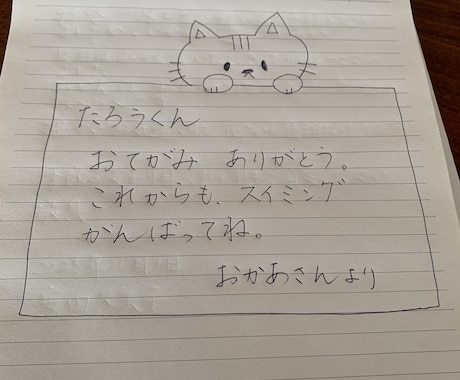 たろうくん
おてがみ ありがとう。
これからも、スイミング
がんばってね。
おかあさんより